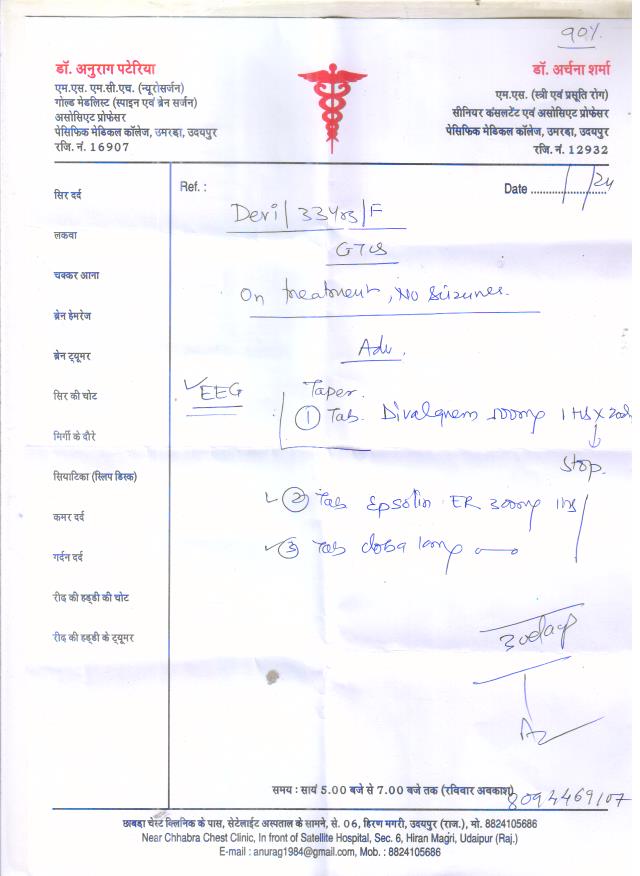 90%
डॉ. अनुराग पटेरिया
एम.एस. एम.सी.एच. (न्यूरोसर्जन)
गोल्ड मेडलिस्ट (स्पाइन एवं ब्रेन सर्जन)
असोसिएट प्रोफेसर
पेसिफिक मेडिकल कॉलेज, उमरडा, उदयपुर
रजि. नं. 16907
डॉ. अर्चना शर्मा
एम.एस. (स्त्री एवं प्रसूति रोग)
सीनियर कंसलटेंट एवं असोसिएट प्रोफेसर
पेसिफिक मेडिकल कॉलेज, उमरडा, उदयपुर
रजि. नं. 12932
Ref. :
Date ....../....../24
सिर दर्द
लकवा
चक्कर आना
ब्रेन हेमरेज
ब्रेन ट्यूमर
सिर की चोट
मिर्गी के दौरे
सियाटिका (स्लिप डिस्क)
कमर दर्द
गर्दन दर्द
रीढ की हड्डी की चोट
रीढ की हड्डी के ट्यूमर
Devi / 33yrs / F
GTCS
On treatment, No Seizures.
Adv.
EEG
Taper.
① Tab. Divalquem mg 1 HS x
Stop.
② Tab Epsolin ER 300mg 1HS
③ Tab cloba 10mg
30 days
समय : सायं 5.00 बजे से 7.00 बजे तक (रविवार अवकाश)
8094469107
छाबड़ा चेस्ट क्लिनिक के पास, सेटेलाईट अस्पताल के सामने, से. 06, हिरण मगरी, उदयपुर (राज.), मो. 8824105686
Near Chhabra Chest Clinic, In front of Satellite Hospital, Sec. 6, Hiran Magri, Udaipur (Raj.)
E-mail : anurag1984@gmail.com, Mob. : 8824105686